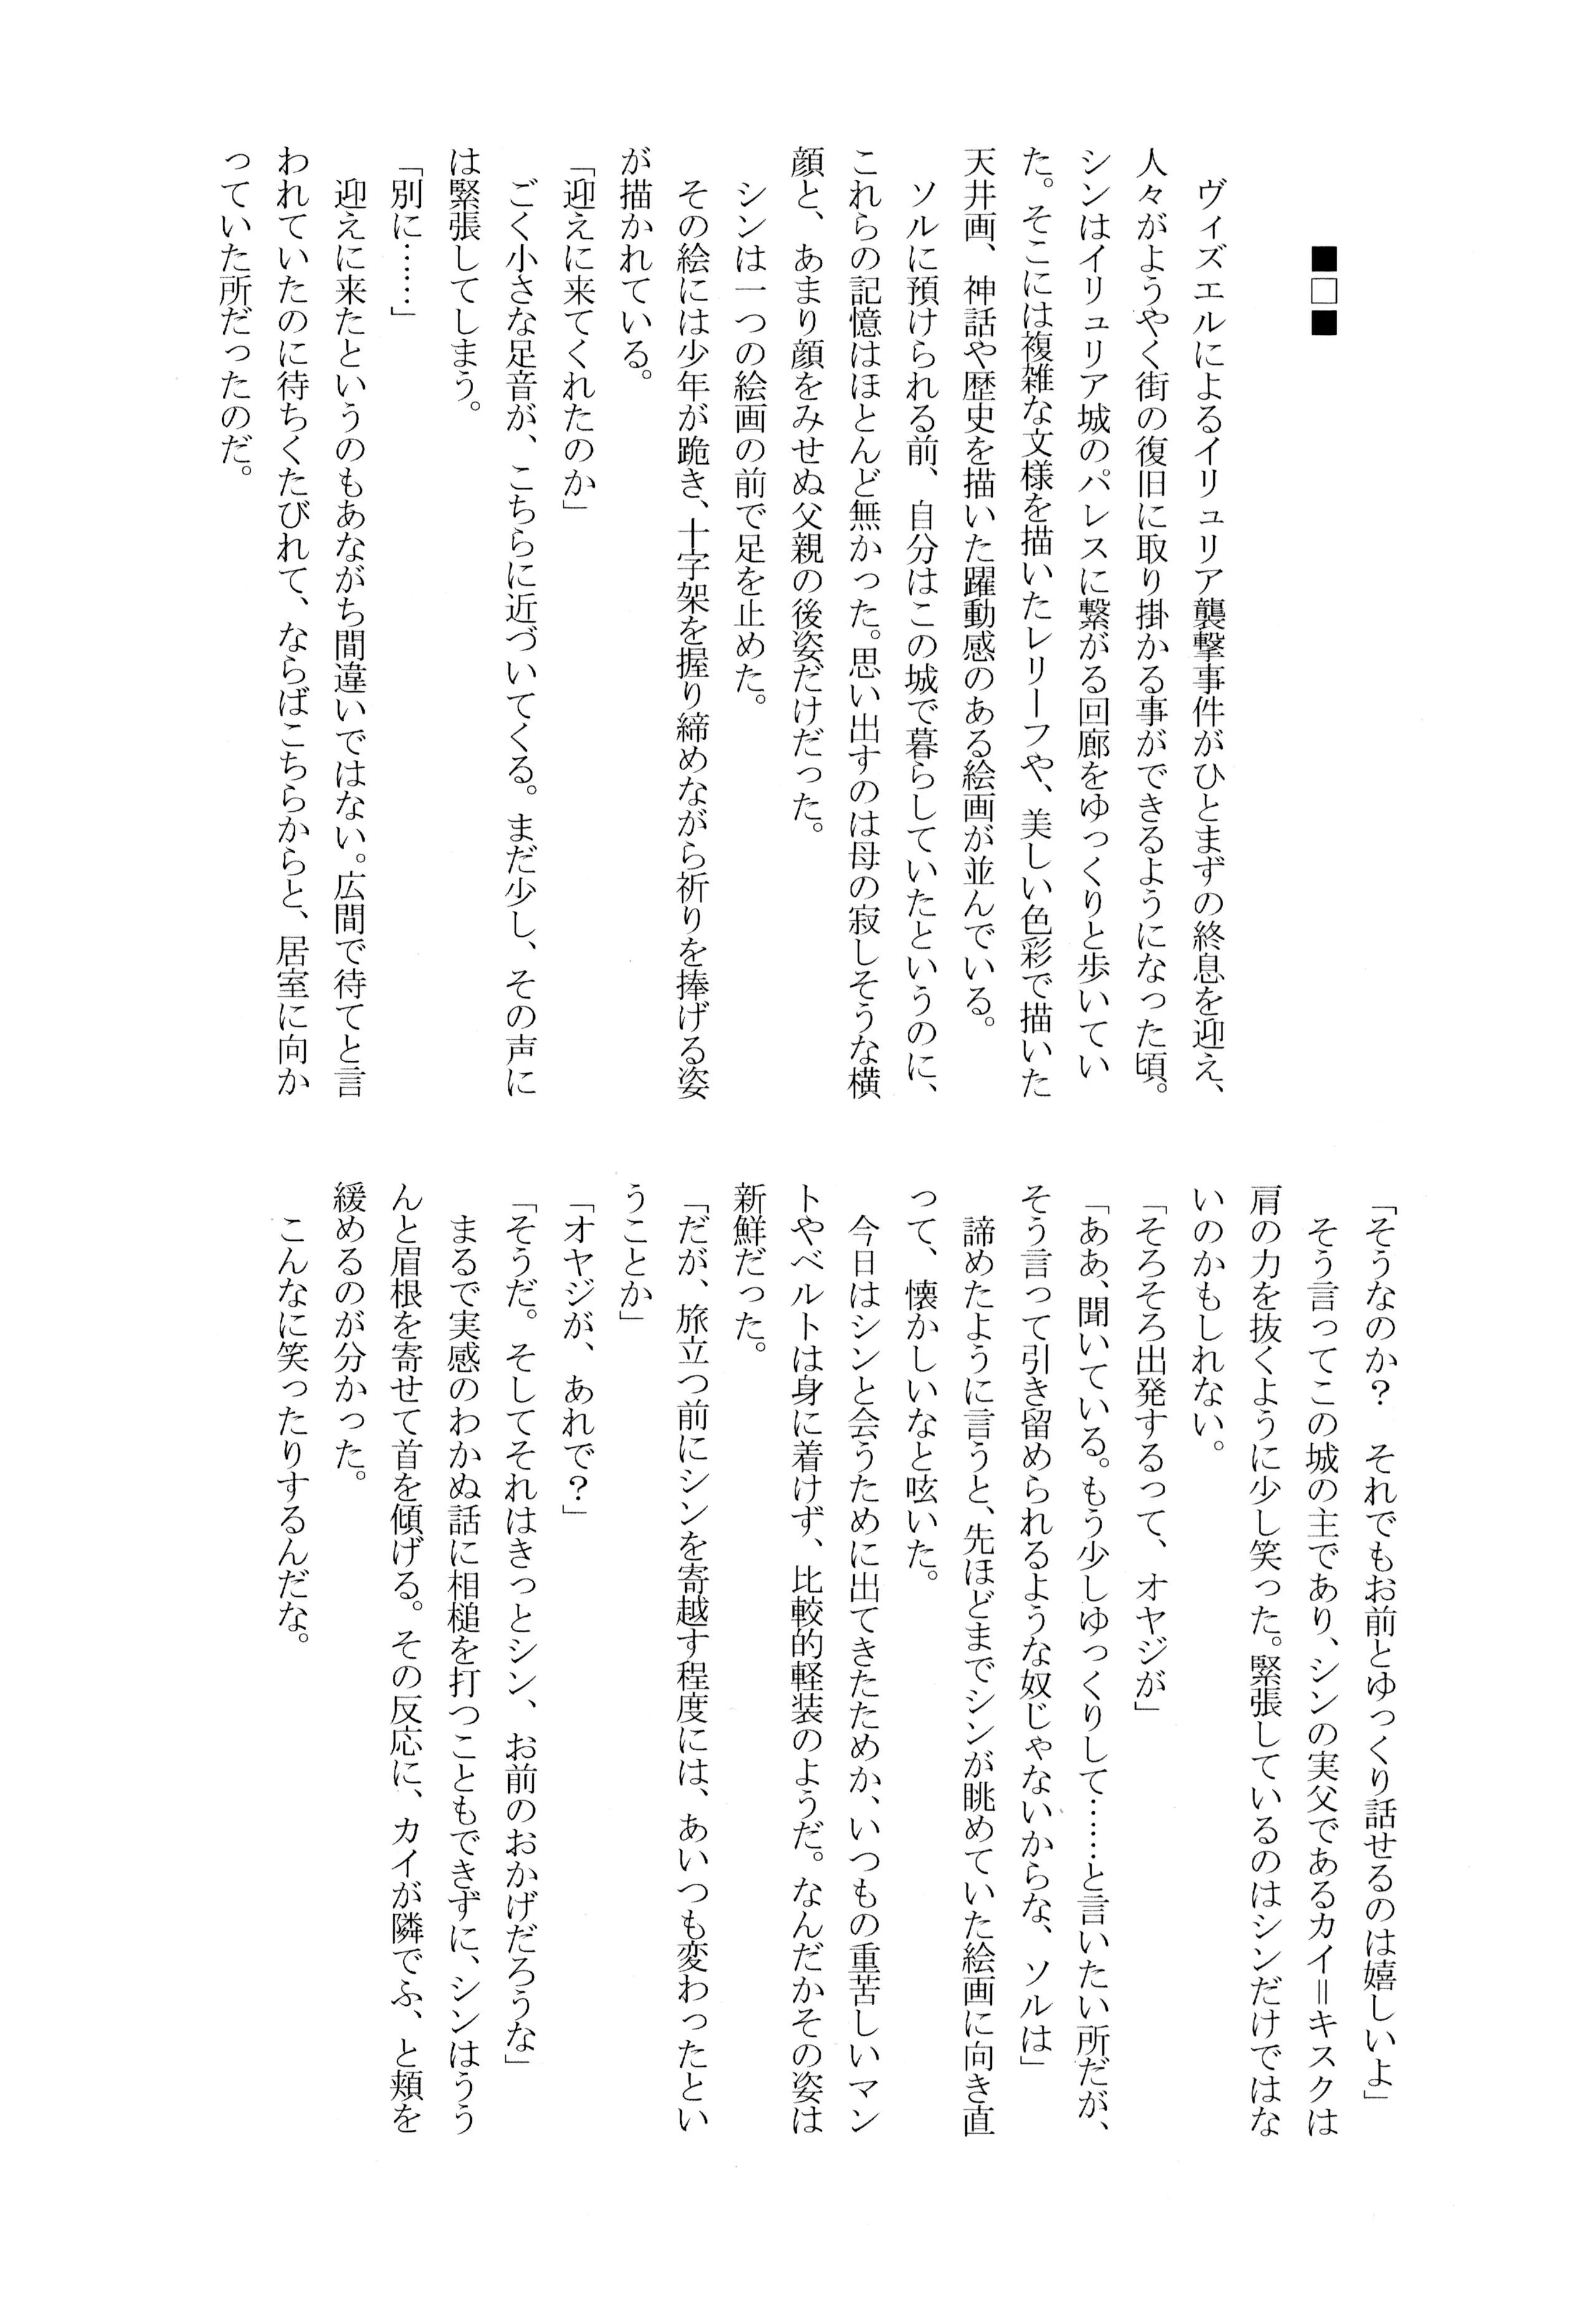 ■□■
　ヴィズエルによるイリュリア襲撃事件がひとまずの終息を迎え、
人々がようやく街の復旧に取り掛かる事ができるようになった頃。
シンはイリュリア城のパレスに繋がる回廊をゆっくりと歩いてい
た。そこには複雑な文様を描いたレリーフや、美しい色彩で描いた
天井画、神話や歴史を描いた躍動感のある絵画が並んでいる。
　ソルに預けられる前、自分はこの城で暮らしていたというのに、
これらの記憶はほとんど無かった。思い出すのは母の寂しそうな横
顔と、あまり顔をみせぬ父親の後姿だけだった。
　シンは一つの絵画の前で足を止めた。
　その絵には少年が跪き、十字架を握り締めながら祈りを捧げる姿
が描かれている。
「迎えに来てくれたのか」
　ごく小さな足音が、こちらに近づいてくる。まだ少し、その声に
は緊張してしまう。
「別に……」
　迎えに来たというのもあながち間違いではない。広間で待てと言
われていたのに待ちくたびれて、ならばこちらからと、居室に向か
っていた所だったのだ。
「そうなのか？　それでもお前とゆっくり話せるのは嬉しいよ」
　そう言ってこの城の主であり、シンの実父であるカイ＝キスクは
肩の力を抜くように少し笑った。緊張しているのはシンだけではな
いのかもしれない。
「そろそろ出発するって、オヤジが」
「ああ、聞いている。もう少しゆっくりして……と言いたい所だが、
そう言って引き留められるような奴じゃないからな、ソルは」
　諦めたように言うと、先ほどまでシンが眺めていた絵画に向き直
って、懐かしいなと呟いた。
　今日はシンと会うために出てきたためか、いつもの重苦しいマン
トやベルトは身に着けず、比較的軽装のようだ。なんだかその姿は
新鮮だった。
「だが、旅立つ前にシンを寄越す程度には、あいつも変わったとい
うことか」
「オヤジが、あれで？」
「そうだ。そしてそれはきっとシン、お前のおかげだろうな」
　まるで実感のわかぬ話に相槌を打つこともできずに、シンはうう
んと眉根を寄せて首を傾げる。その反応に、カイが隣でふ、と頬を
緩めるのが分かった。
　こんなに笑ったりするんだな。